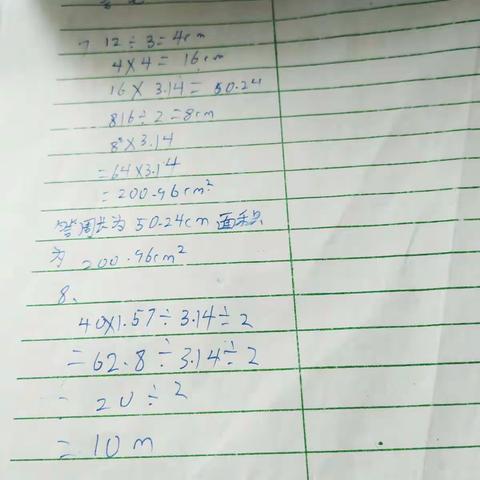 7 12÷3=4cm
4×4=16cm
16×3.14=50.24
816÷2=8cm
8²×3.14
=64×3.14
=200.96cm²
答周长为50.24cm面积
为200.96cm²
8、
40×1.57÷3.14÷2
=62.8÷3.14÷2
=20÷2
=10m